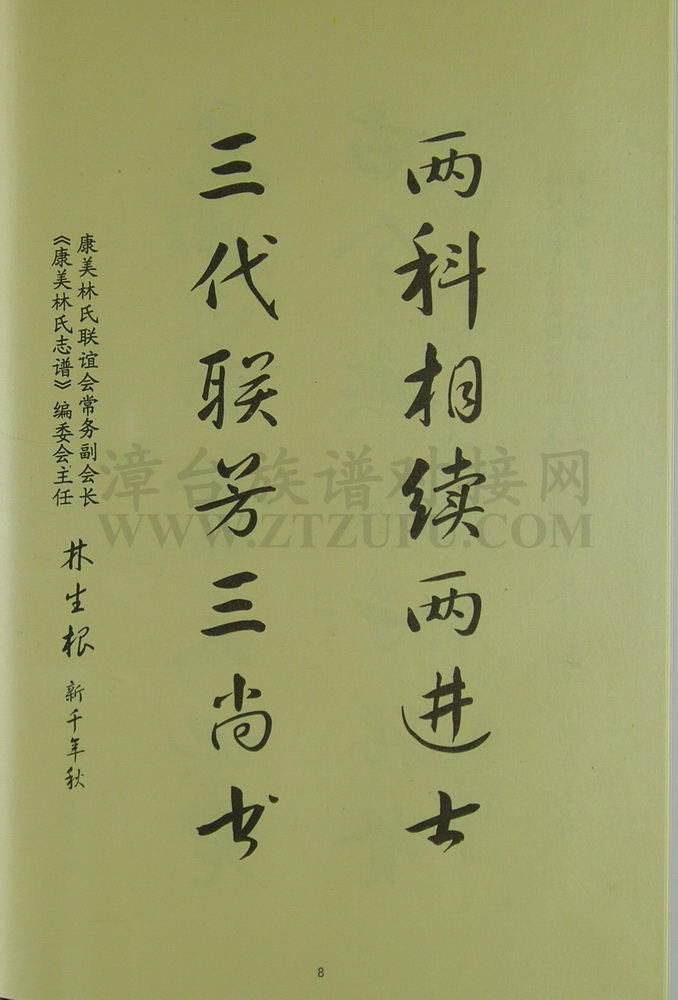 两科相续两进士
三代联芳三尚书
康美林氏联谊会常务副会长
《康美林氏志谱》编委会主任
林生根 新千年秋
漳台族谱对接网
WWW.ZTZUPU.COM
8